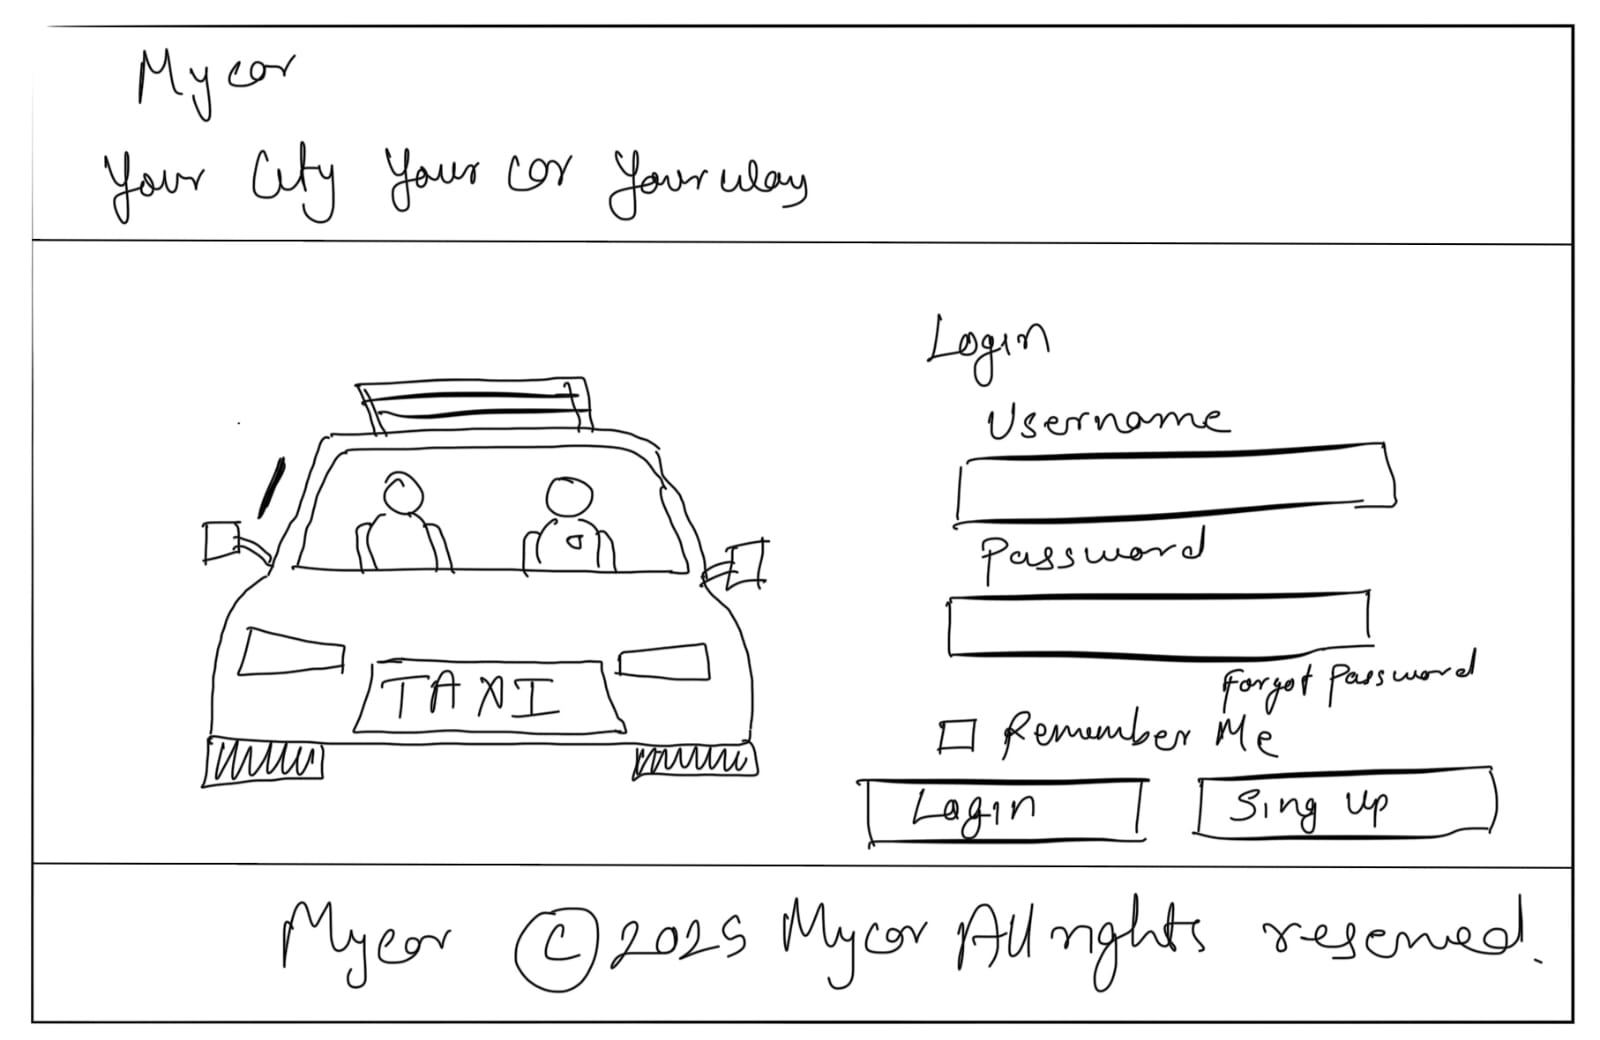 Mycar
Your City Your car Your way
Login
Username
Password
Forgot Password
Remember Me
Login
Sing up
TAXI
Mycar © 2025 Mycar All rights reserved.